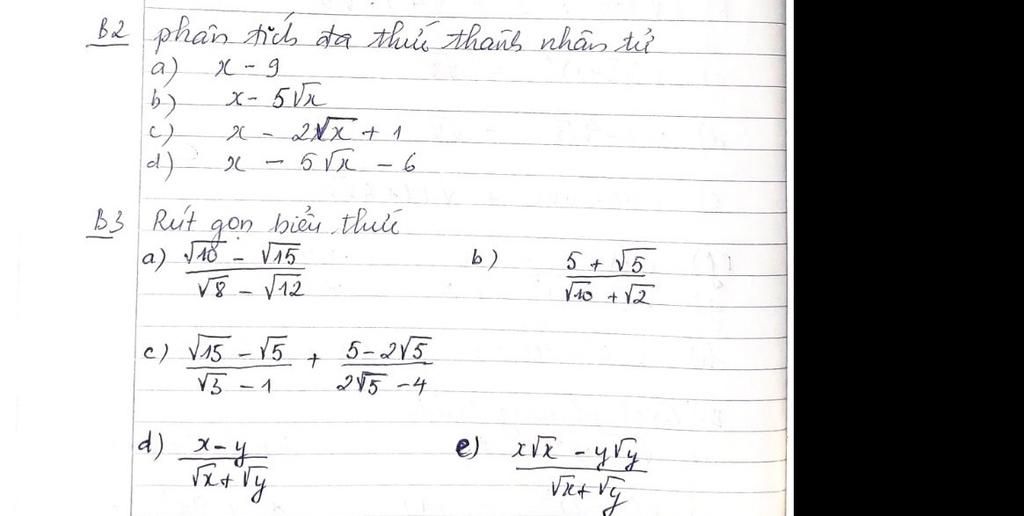 B2 phân tích đa thức thành nhân tử
a) x - 9
b) x - 5√x
c) x - 2√x + 1
d) x - 5√x - 6
B3 Rút gọn biểu thức
a) (√10 - √15)/(√8 - √12) b) (5 + √5)/(√10 + √2)
c) (√15 - √5)/(√3 - 1) + (5 - 2√5)/(2√5 - 4)
d) (x - y)/(√x + √y) e) (x√x - y√y)/(√x + √y)